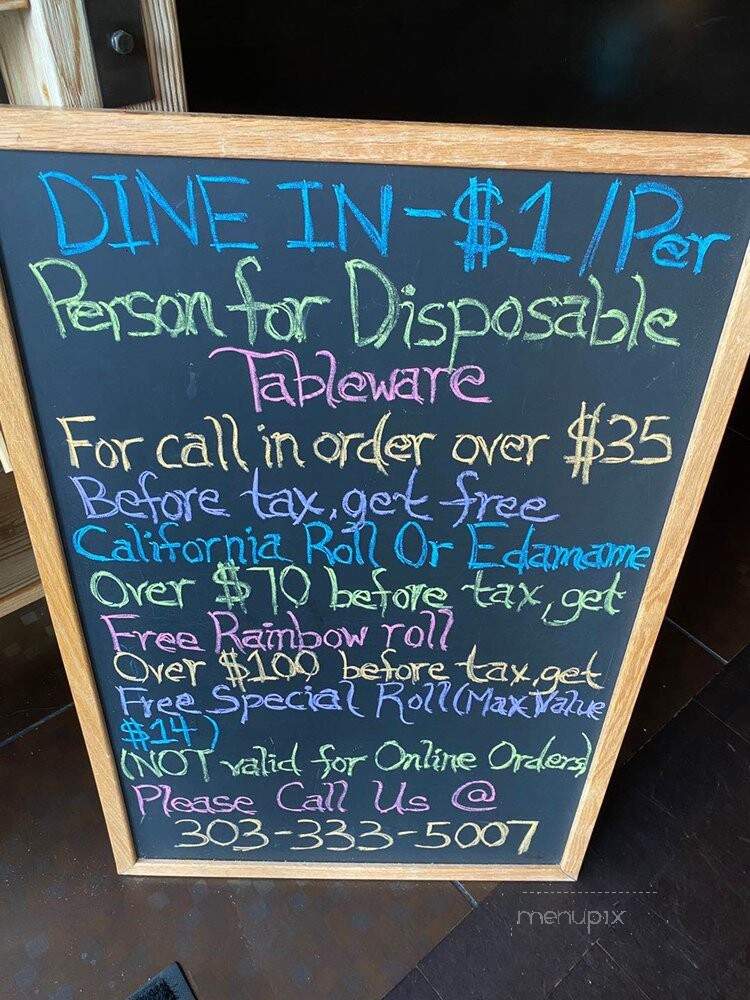 DINE IN-$1/Per
Person for Disposable
Tableware
For call in order over $35
Before tax, get free
California Roll Or Edamame
Over $70 before tax, get
Free Rainbow roll
Over $100 before tax, get
Free Special Roll (Max Value
$14)
(NOT valid for Online Orders)
Please Call Us @
303-333-5007
menupix